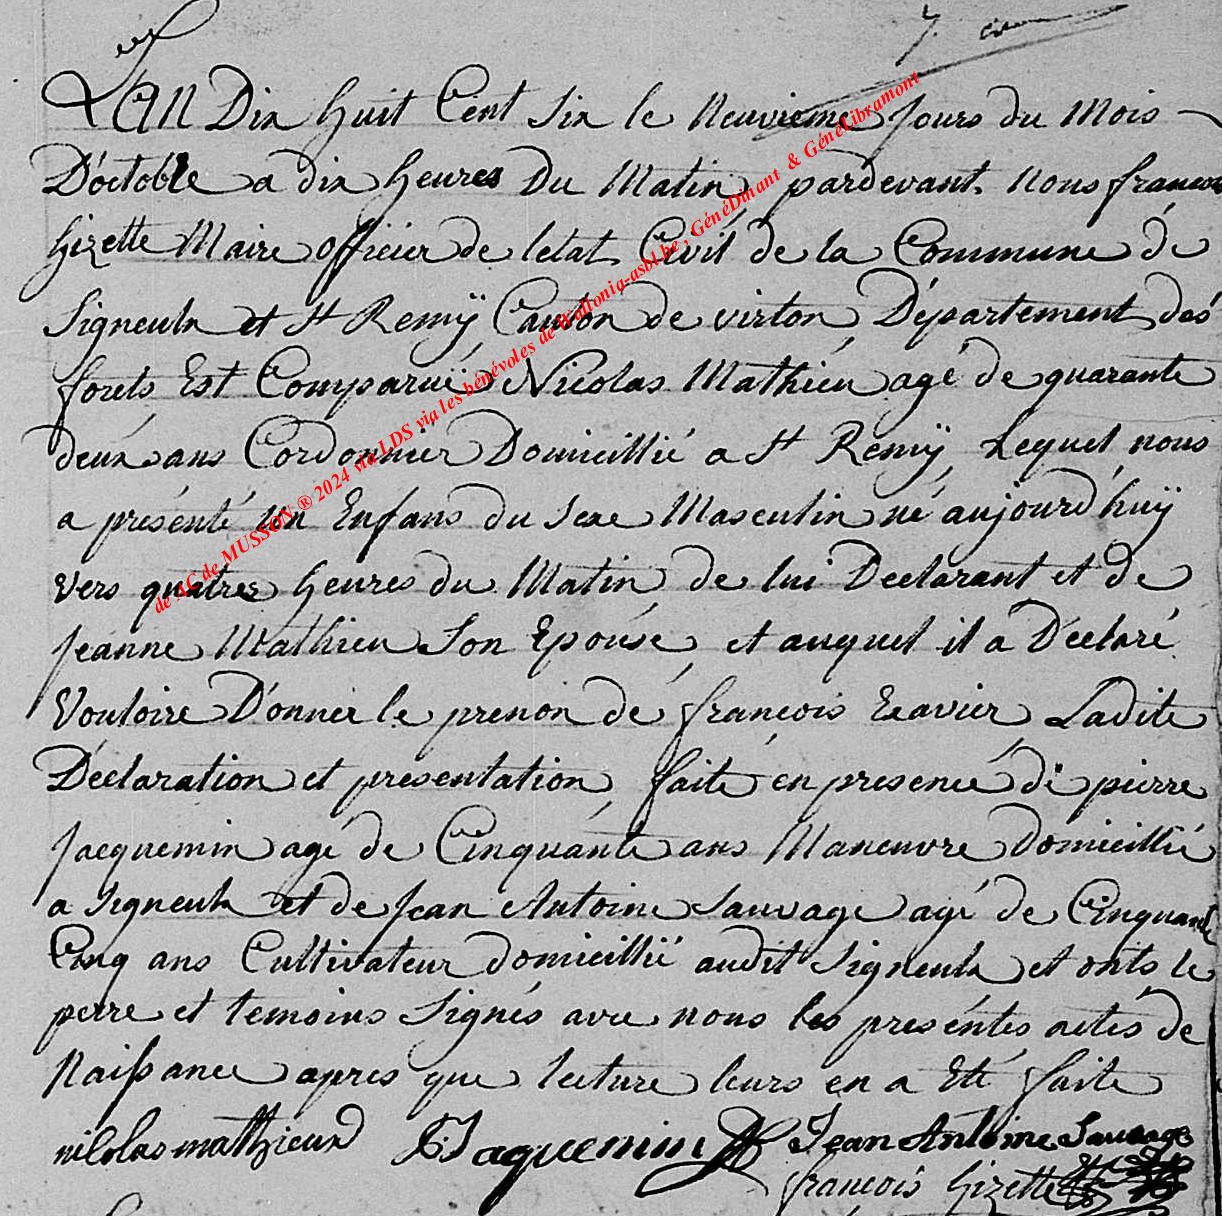 L'an Dix huit Cent Six le Neuvieme Jours du Mois
D'octobre a dix heures Du Matin pardevant Nous françois
Gizette Maire officier de letat Civil de la Commune de
Signeulx et St Remÿ Canton de virton Département dés
forets Est Comparué Nicolas Mathieu agé de quarante
deux ans Cordonnier Domicillié a St Remÿ Lequel nous
a présenté un Enfans du Sexe Masculin né aujourd'huÿ
vers quatres heures du Matin de lui Declarant et de
Jeanne Mathieu Son Epouse et auquel il a Déclaré
Vouloire Donner le prenon dé françois Exavier Ladite
Déclaration et presentation faite en presence de pierre
Jacquemin agé de Cinquante ans Manœuvre Domicillié
a Signeulx et de Jean Antoine Sauvage agé de Cinquante
Cinq ans Cultivateur domicillié audit Signeulx et onts le
perre et temoins Signés avec nous les preséntes actes de
Naissance apres que lecture leurs en a Eté faite
nicolas mathieux Jaquemin Jean Antoine Sauvage
françois Gizette
de AC de MUSSON ® 2024 via LDS via les bénévoles de Wallonia-asbl.be , GénéDinant & GénéLibramont